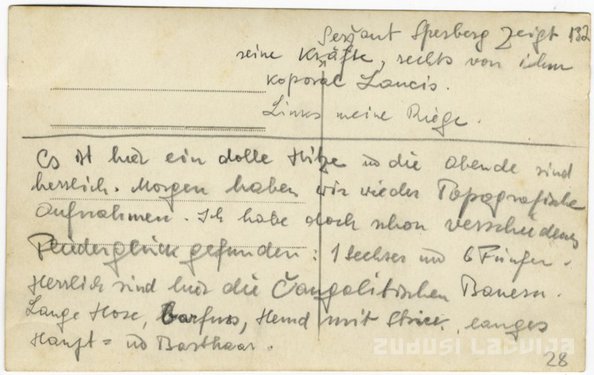 Seržant Sperberg zeigt 132
seine Kräfte, rechts von ihm
Koporal Laucis.
Links meine Riege.
Es ist hier ein dolle Hitze u die Abende sind
herrlich. Morgen haben wir wieder Topografische
Aufnahmen. Ich habe doch schon verschiedenes
gefunden: 1 Sechser und 6 Fünfer.
Herrlich sind hier die Bauern.
Lange Hose, barfuss, Hemd mit Strick, langes
Haupt= u Barthaar.
ZUDUSI LATVIJA
28